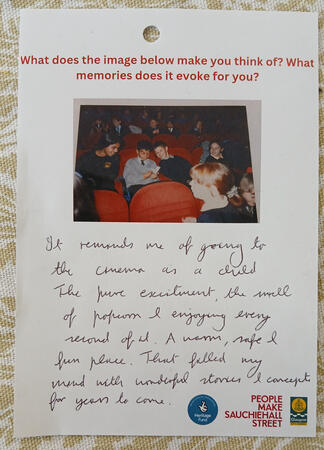 What does the image below make you think of? What
memories does it evoke for you?
It reminds me of going to
the cinema as a child
The pure excitment, the smell
of popcorn & enjoying every
second of it. A warm, safe &
fun place. That filled my
mind with wonderful stories & concepts
for years to come.
Heritage
Fund
PEOPLE
MAKE
SAUCHIEHALL
STREET